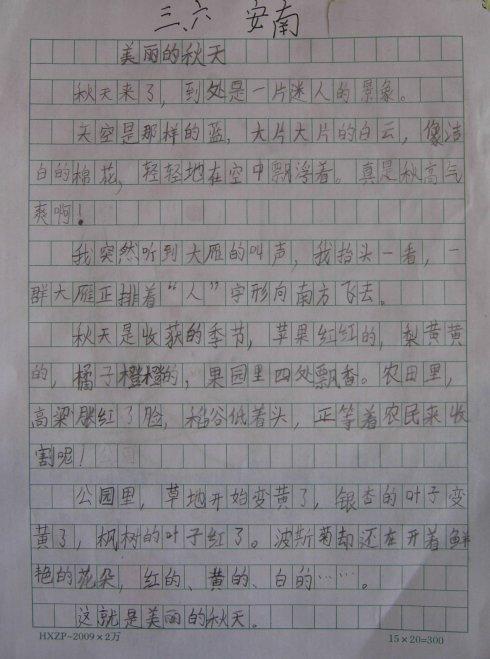 三、六 安南
美丽的秋天
秋天来了，到处是一片迷人的景象。
天空是那样的蓝，大片大片的白云，像洁
白的棉花，轻轻地在空中飘浮着。真是秋高气
爽啊！
我突然听到大雁的叫声，我抬头一看，一
群大雁正排着“人”字形向南方飞去。
秋天是收获的季节，苹果红红的，梨黄黄
的，橘子橙橙的，果园里四处飘香。农田里，
高梁胀红了脸，稻谷低着头，正等着农民来收
割呢！
公园里，草地开始变黄了，银杏的叶子变
黄了，枫树的叶子红了。波斯菊却还在开着鲜
艳的花朵，红的、黄的、白的……。
这就是美丽的秋天。
HXZP-2009×2万 15×20=300